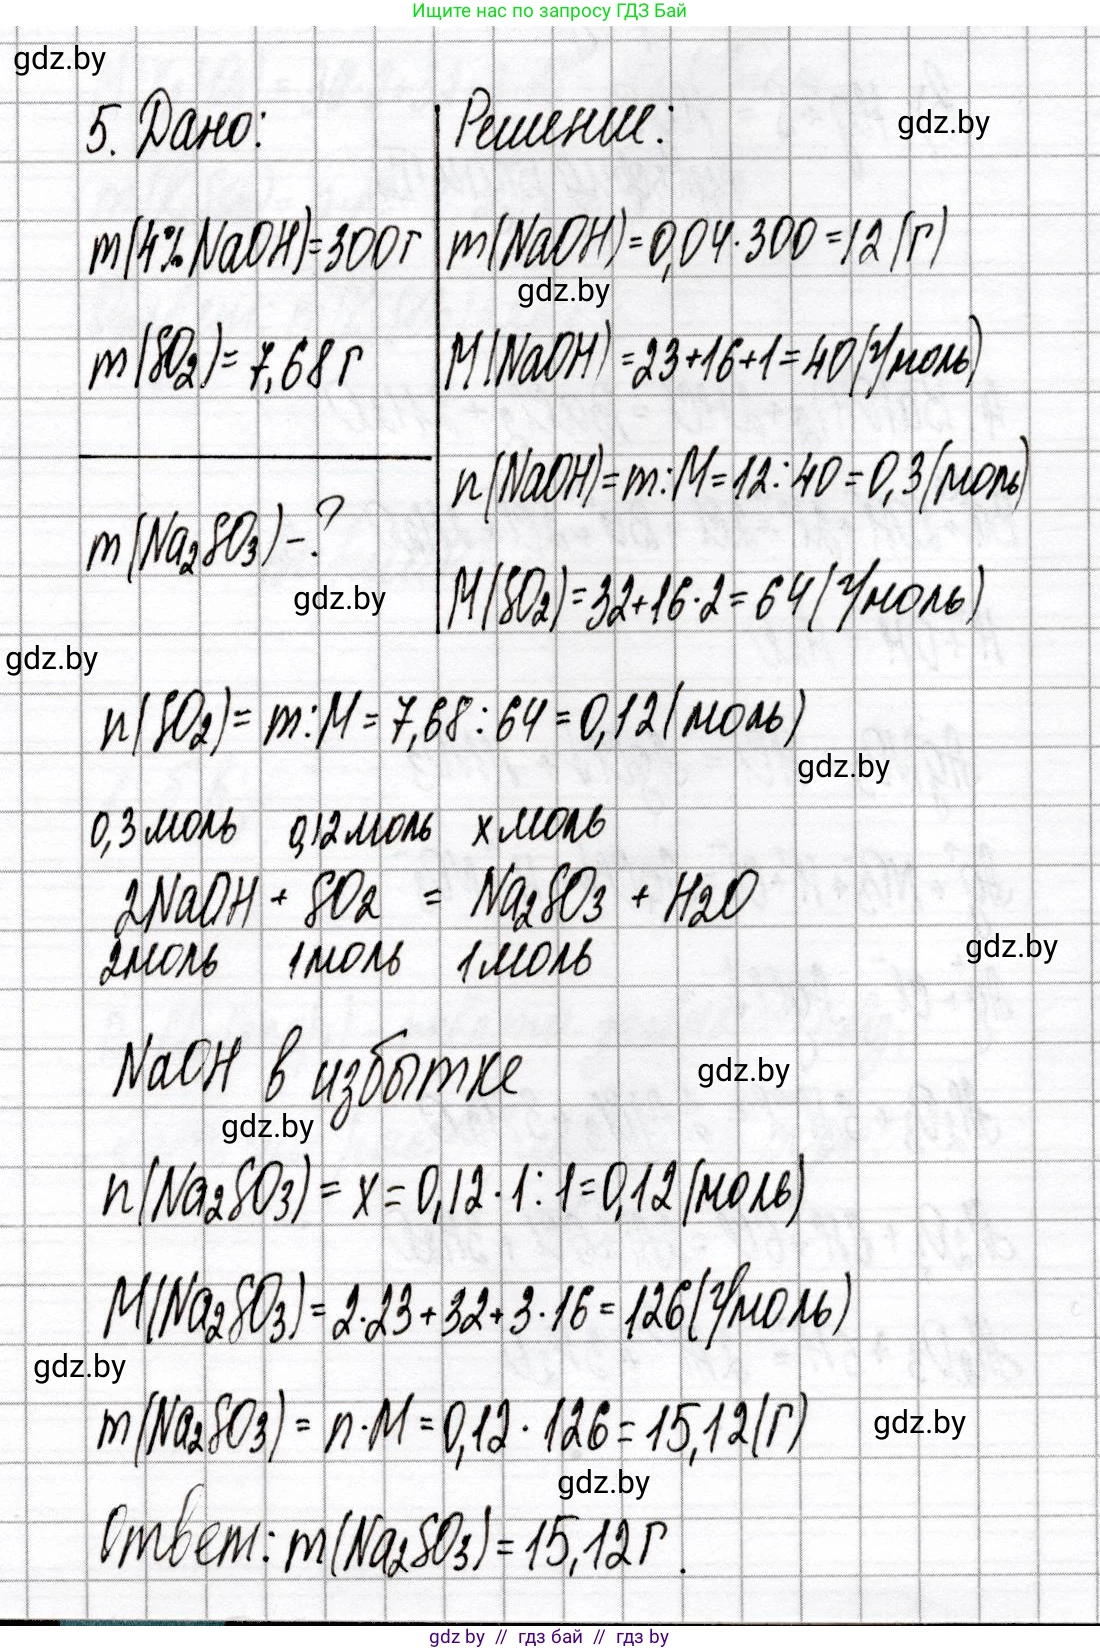 Ищите нас по запросу ГДЗ Бай
gdz.by
5. Дано:
Решение:
gdz.by
m(4% NaOH)=300г
m(NaOH)=0,04·300=12(г)
gdz.by
m(SO2)=7,68г
M(NaOH)=23+16+1=40(г/моль)
n(NaOH)=m:M=12:40=0,3(моль)
m(Na2SO3)-?
gdz.by
M(SO2)=32+16·2=64(г/моль)
gdz.by
n(SO2)=m:M=7,68:64=0,12(моль)
gdz.by
0,3моль 0,12моль x моль
2NaOH + SO2 = Na2SO3 + H2O
2моль 1моль 1моль
gdz.by
NaOH в избытке
gdz.by
gdz.by
n(Na2SO3)=x=0,12·1:1=0,12(моль)
M(Na2SO3)=2·23+32+3·16=126(г/моль)
gdz.by
m(Na2SO3)=n·M=0,12·126=15,12(г)
gdz.by
gdz.by
Ответ: m(Na2SO3)=15,12г.
gdz.by // гдз бай // гдз by